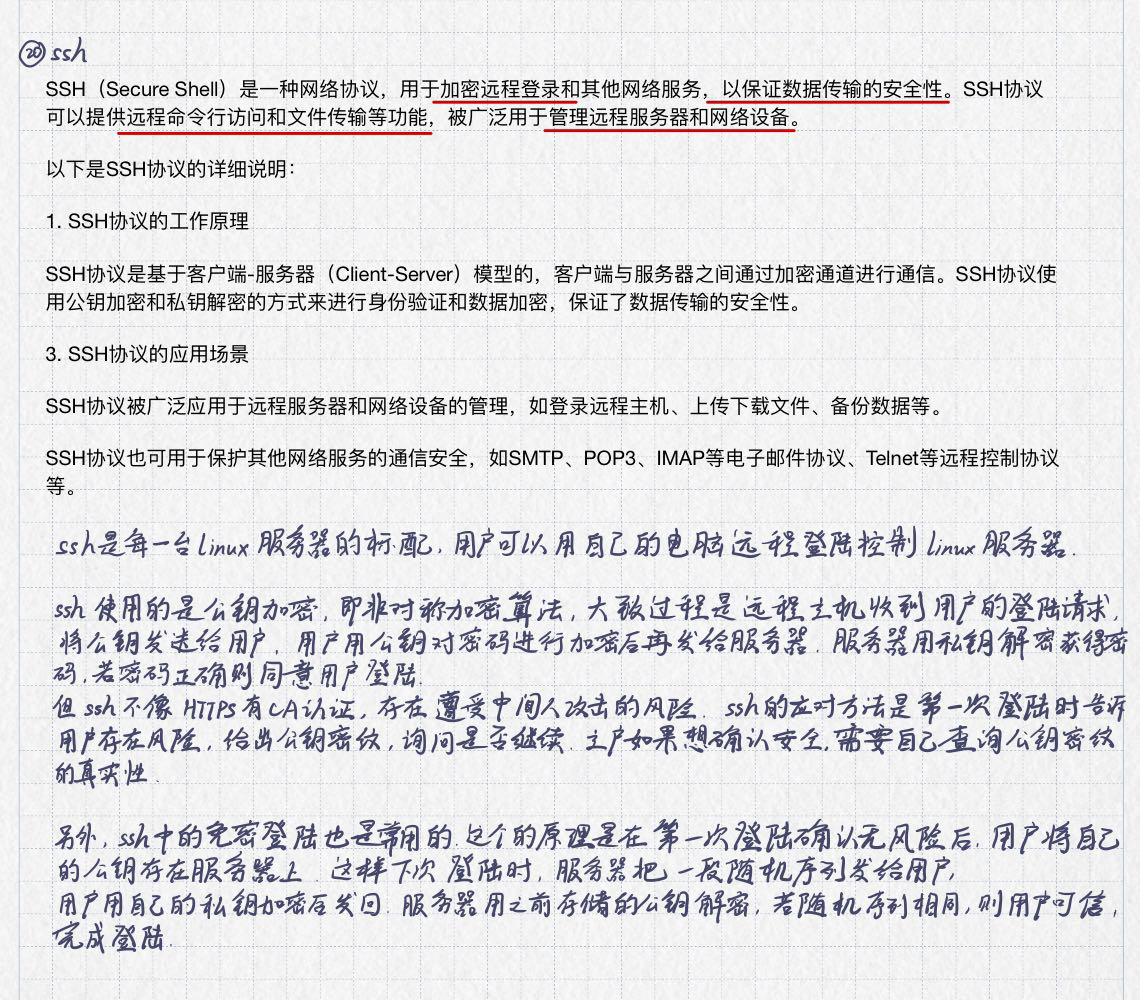 ⑳ ssh
SSH（Secure Shell）是一种网络协议，用于加密远程登录和其他网络服务，以保证数据传输的安全性。SSH协议
可以提供远程命令行访问和文件传输等功能，被广泛用于管理远程服务器和网络设备。
以下是SSH协议的详细说明：
1. SSH协议的工作原理
SSH协议是基于客户端-服务器（Client-Server）模型的，客户端与服务器之间通过加密通道进行通信。SSH协议使
用公钥加密和私钥解密的方式来进行身份验证和数据加密，保证了数据传输的安全性。
3. SSH协议的应用场景
SSH协议被广泛应用于远程服务器和网络设备的管理，如登录远程主机、上传下载文件、备份数据等。
SSH协议也可用于保护其他网络服务的通信安全，如SMTP、POP3、IMAP等电子邮件协议、Telnet等远程控制协议
等。
ssh是每一台linux服务器的标配，用户可以用自己的电脑远程登陆控制linux服务器.
ssh使用的是公钥加密，即非对称加密算法，大致过程是远程主机收到用户的登陆请求，
将公钥发送给用户，用户用公钥对密码进行加密后再发给服务器.服务器用私钥解密获得密
码，若密码正确则同意用户登陆.
但ssh不像HTTPS有CA认证，存在遭受中间人攻击的风险.ssh的应对方法是第一次登陆时告诉
用户存在风险，给出公钥密纹，询问是否继续.主户如果想确认安全，需要自己查询公钥密纹
的真实性.
另外，ssh中的免密登陆也是常用的.这个的原理是在第一次登陆确认无风险后，用户将自己
的公钥存在服务器上.这样下次登陆时，服务器把一段随机序列发给用户，
用户用自己的私钥加密后发回.服务器用之前存储的公钥解密，若随机序列相同，则用户可信，
完成登陆.